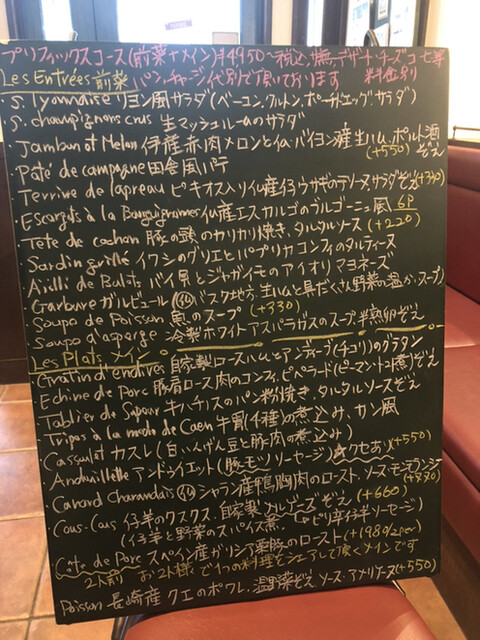 プリフィックスコース(前菜+メイン)¥4950-税込、デザート・チーズ
Les Entrées 前菜 パン、チャージ代別で頂いております 料金別
・S. lyonnaise リヨン風サラダ(ベーコン、クルトン、ポーチドエッグ、サラダ)
・S. champignons crus 生マッシュルームのサラダ
・Jambon et Melon 伊産赤肉メロンとバイヨン産生ハム、ポルト酒ぞえ (+550)
・Pâté de campagne 田舎風パテ
・Terrine de lapreau ピキオス入り仏産仔ウサギのテリーヌサラダぞえ+330
・Escargots à la Bourguignonne 仏産エスカルゴのブルゴーニュ風 6P (+220)
・Tête de cochon 豚の頭のカリカリ焼き、タルタルソース
・Sardin grillé イワシのグリエとパプリカコンフィのタルティーヌ
・Aïlli de Bulots バイ貝とジャガイモのアイオリマヨネーズ
・Garbure ガルビュール 仏バスク地方、生ハムと具だくさん野菜の温かいスープ)
・Soupe de Poisson 魚のスープ (+330)
・Soupe d'asperge 冷製ホワイトアスパラガスのスープ 半熟卵ぞえ
Les Plats メイン
・Gratin d'endives 自家製ロースハムとアンディーブ(チコリ)のグラタン
・Echine de Porc 豚肩ロース肉のコンフィ、ピペラード(ピーマントマト煮)ぞえ
・Tablier de Sapeur ハチノスのパン粉焼き・タルタルソースぞえ
・Tripes à la mode de Caen 牛胃(4種)の煮込み、カン風
・Cassoulet カスレ(白いんげん豆と豚肉の煮込み)
・Andouillette アンドゥイエット(豚モツソーセージ)クセあり (+550)
・Canard Charandais 仏シャラン産鴨胸肉のロースト、ソース・オランジュ (+880)
・Cous-Cous 仔羊のクスクス 自家製メルゲーズぞえ (+660)
(仔羊と野菜のスパイス煮、ピリ辛仔羊ソーセージ)
・Côte de Porc スペイン産ガリシア栗豚のロースト (+1980/2per)
2人前 お2人様で1つの料理をシェアして頂くメインです
Poisson 長崎産クエのポワレ、温野菜ぞえ ソース・アメリケーヌ(+550)